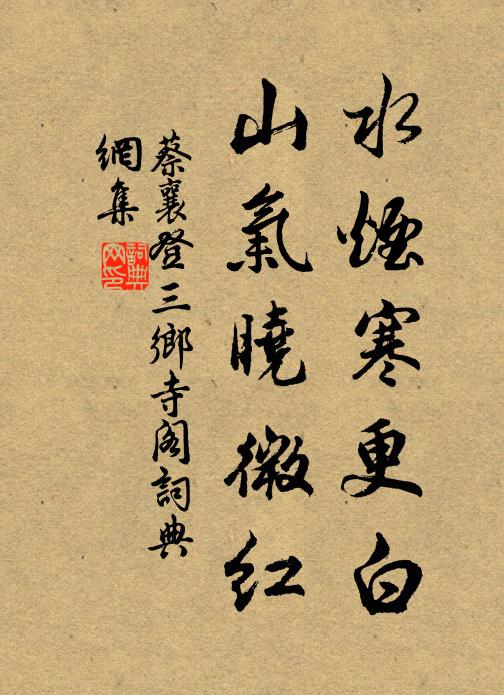 水煙寒更白
山氣曉微紅
蔡襄登三鄉寺閣詞典
網集
詞典
网印